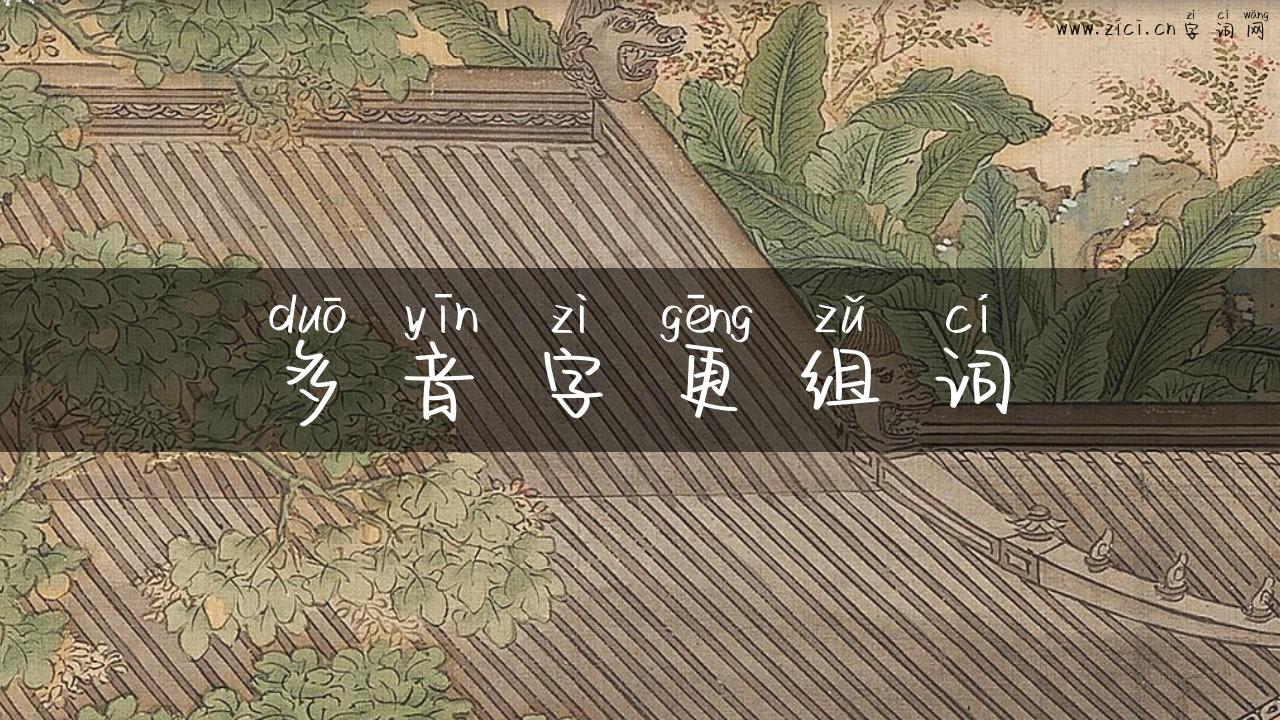 zì cí wǎng
www.zici.cn 字词网
duō yīn zì gēng zǔ cí
多音字更组词